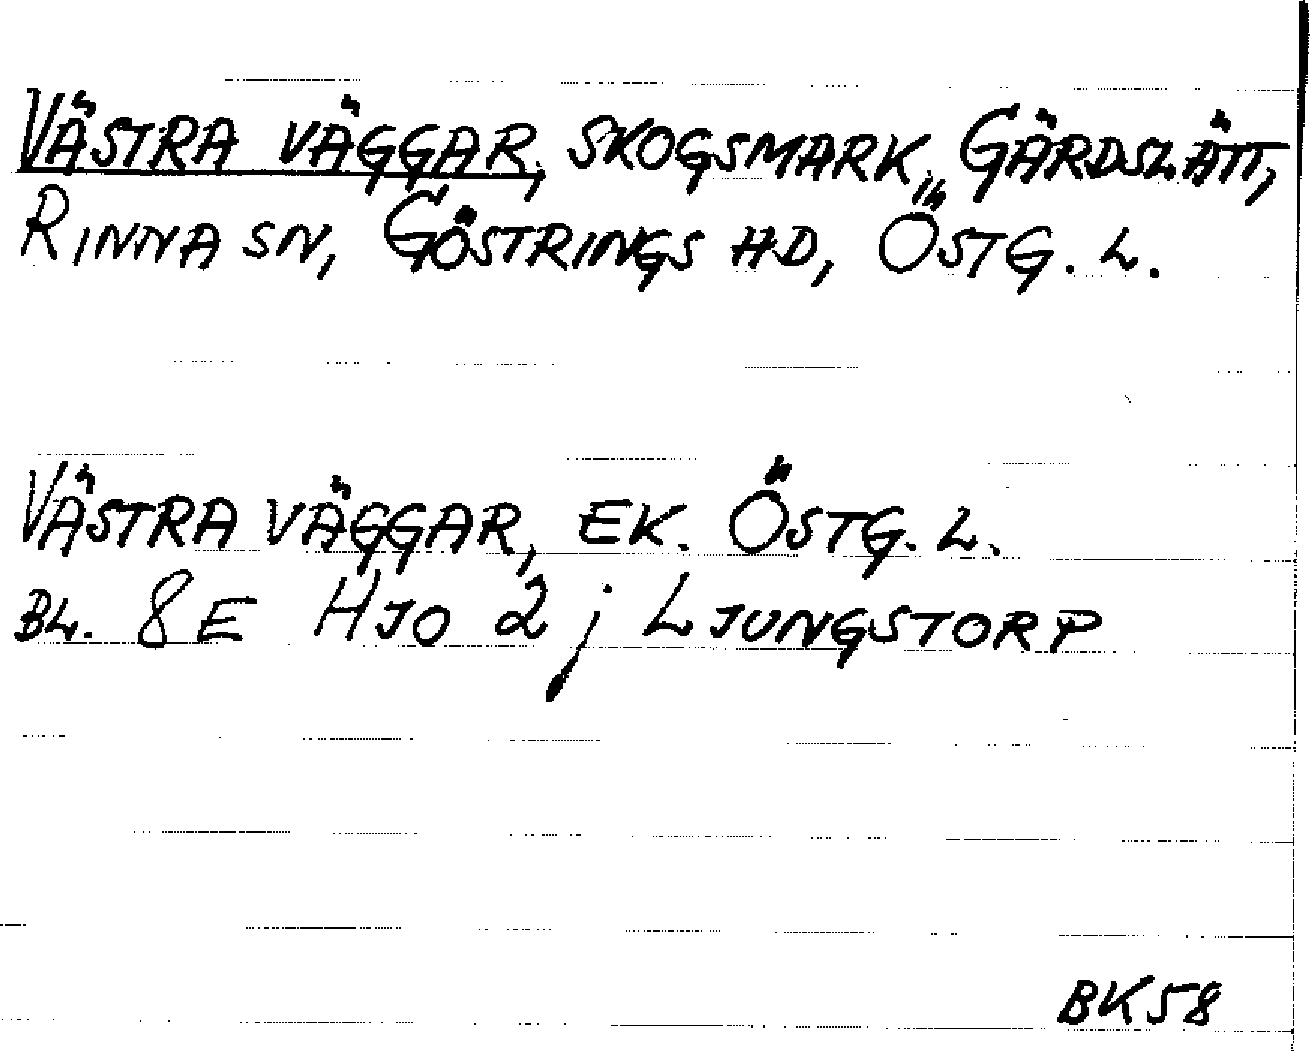 VÄSTRA VÄGGAR, SKOGSMARK, GÄRDSLÄTT,
RINNA SN, GÖSTRINGS HD, ÖSTG. L.
VÄSTRA VÄGGAR, EK. ÖSTG. L.
BL. 8 E HJO 2 j LJUNGSTORP
BK58